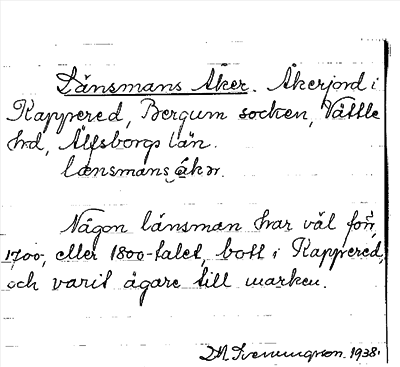 Länsmans Åker. Åkerjord i
Kappered, Bergum socken, Vättle
hrd, Älfsborgs län.
lænsmans ákər.
Någon länsman har väl för
1700, eller 1800-talet, bott i Kappered,
och varit ägare till marken.
1938.